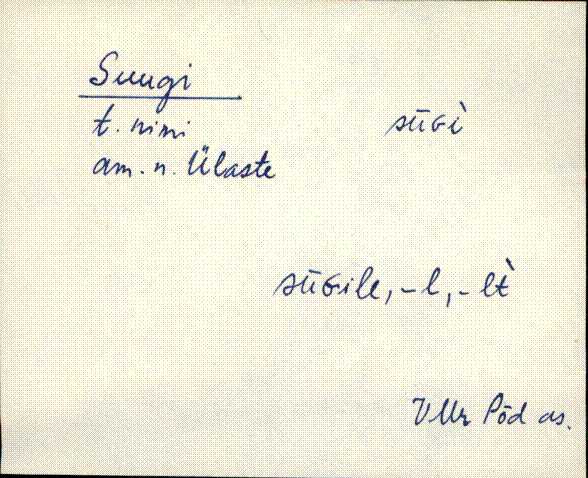 Suugi
t. nimi sūGì
am. n. Ülaste
sūGile, -l, -lt̀
VMr Põd as.